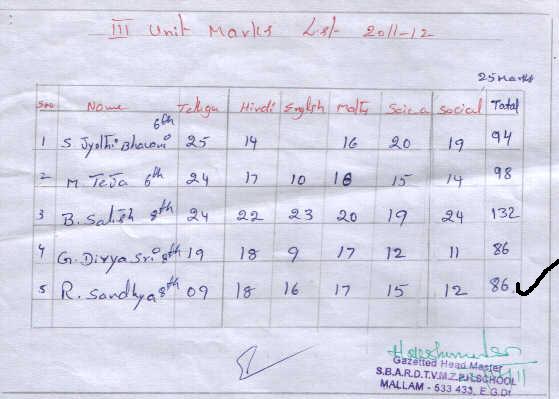 III Unit Marks List 2011-12
25 marks
Sno Name Telugu Hindi English Maths Science Social Total
1 S. Jyothi Bhavani 6th 25 14 16 20 19 94
2 M. Teja 6th 24 17 10 18 15 14 98
3 B. Satish 8th 24 22 23 20 19 24 132
4 G. Divya Sri 8th 19 18 9 17 12 11 86
5 R. Sandhya 8th 09 18 16 17 15 12 86
Gazetted Head Master
S.B.A.R.D.T.V.M.Z.P.H.SCHOOL
MALLAM - 533 433, E.G.Dt